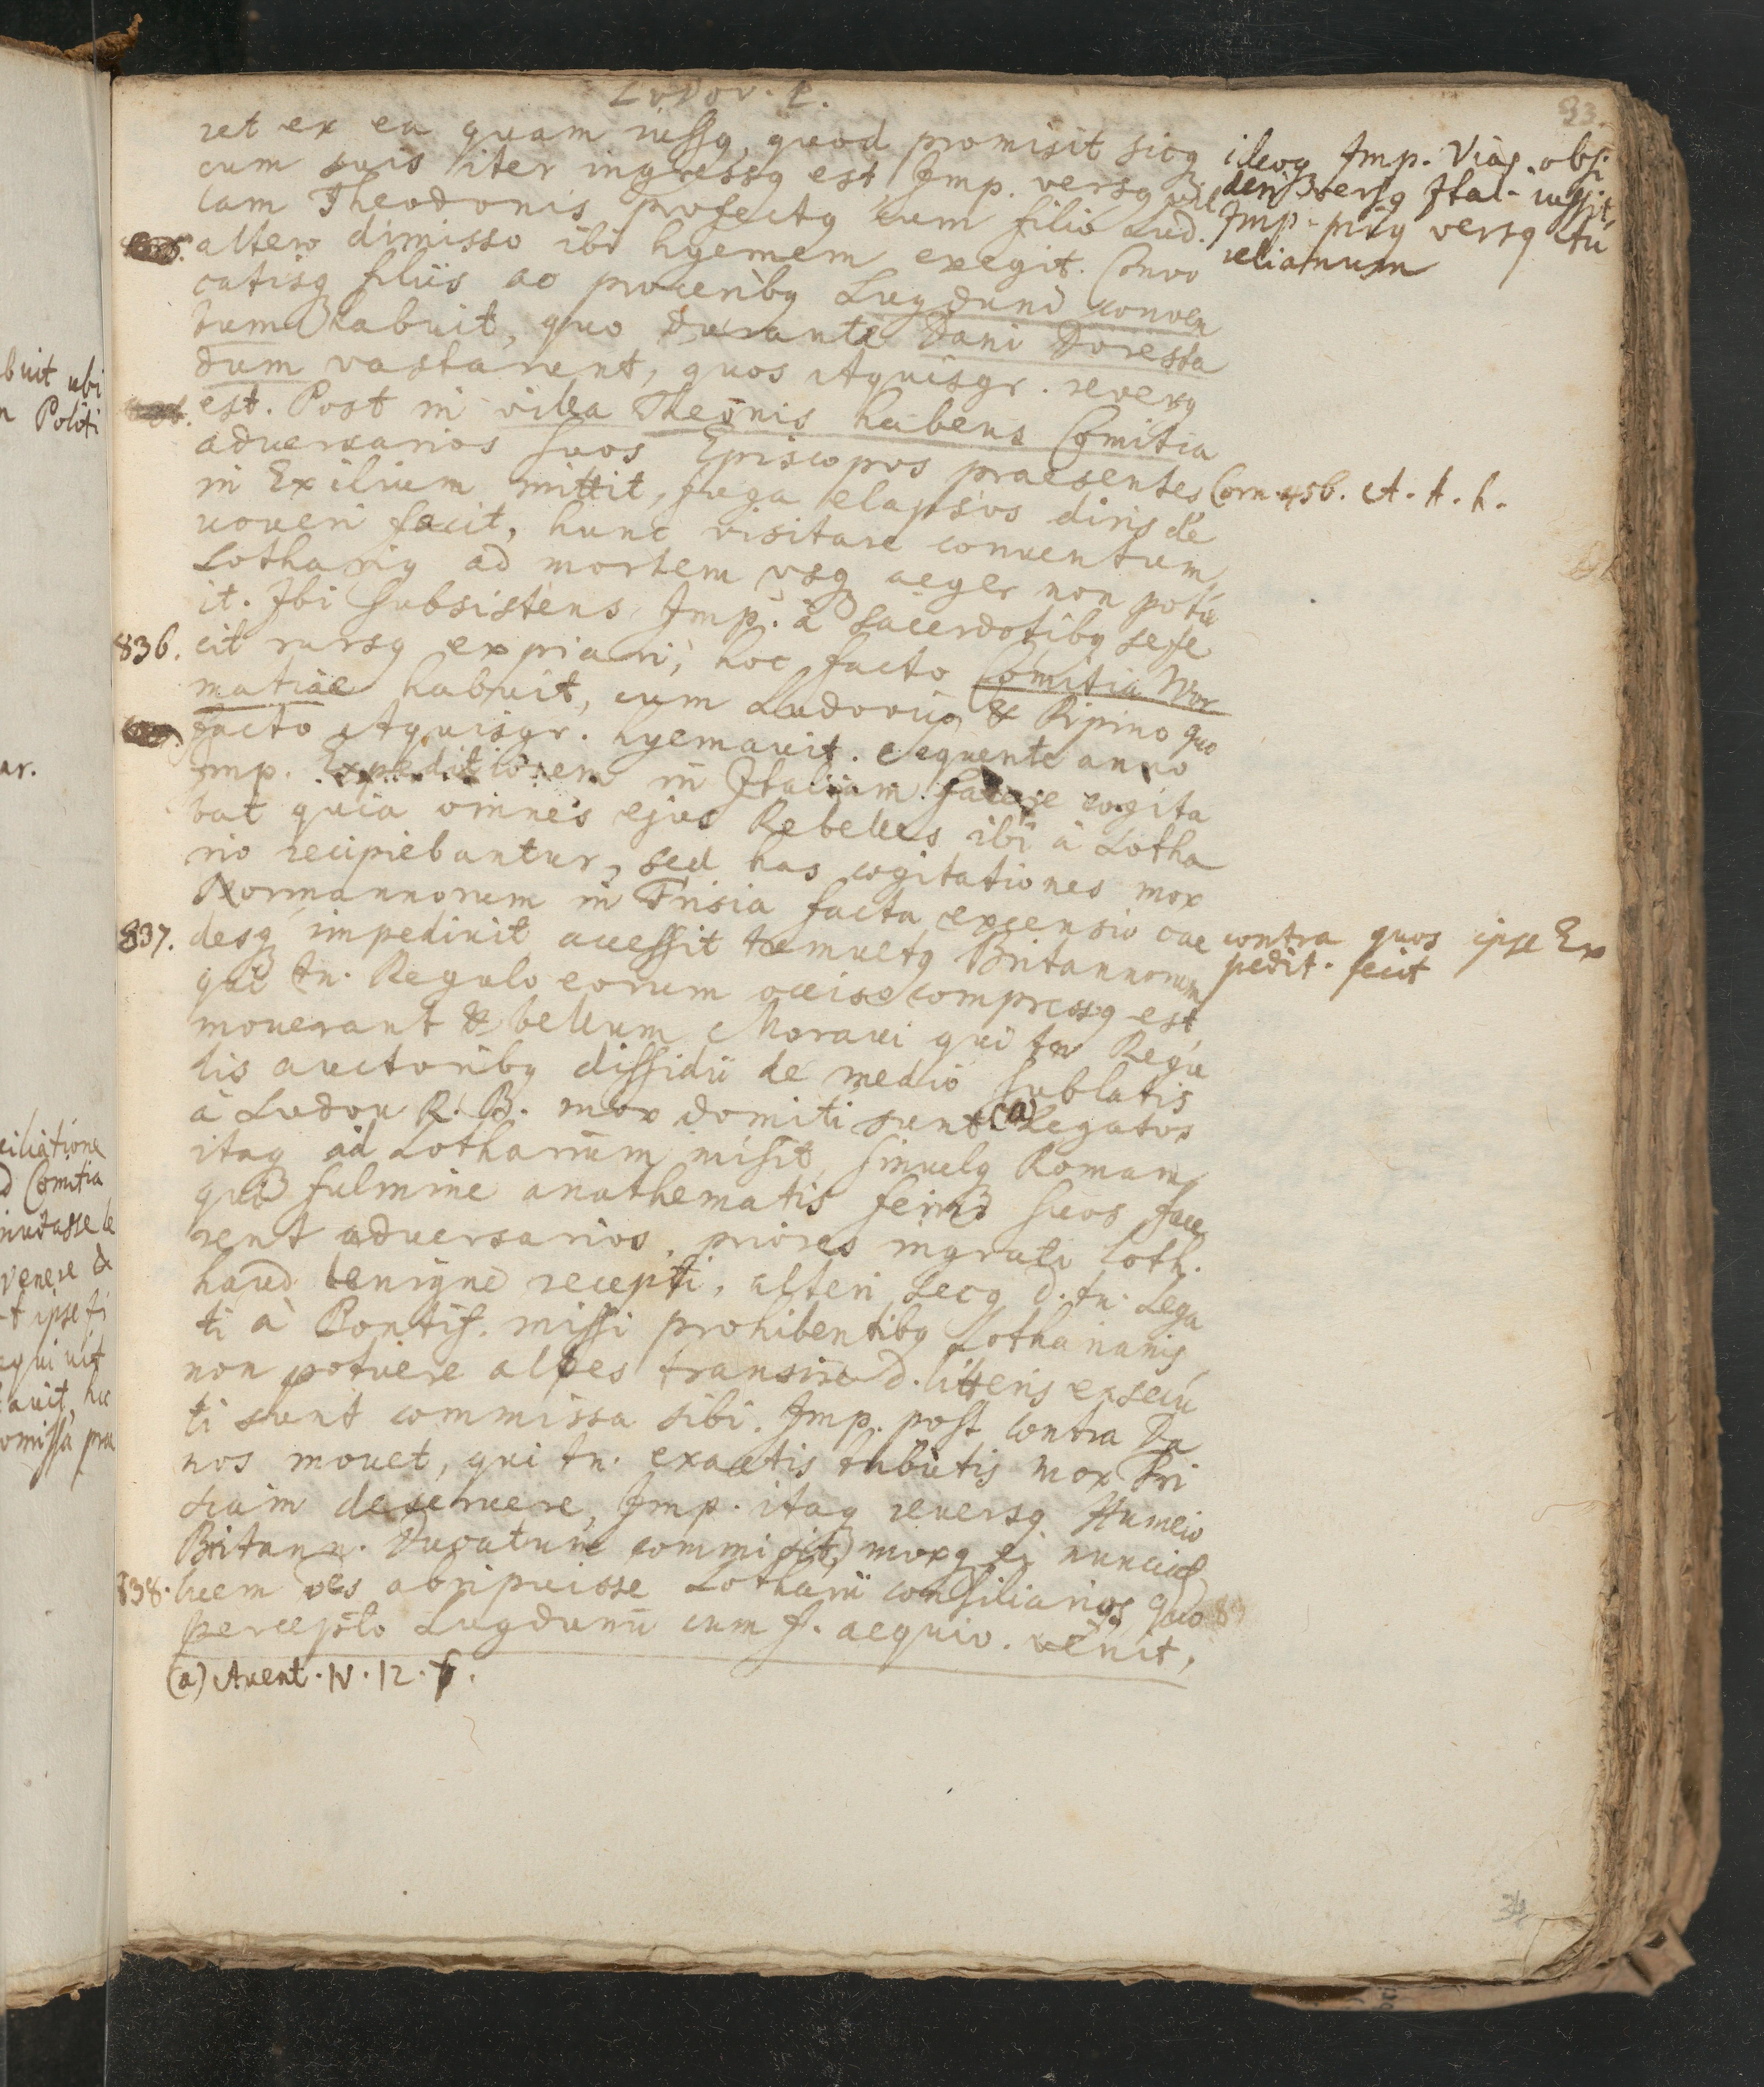 Ludov. P.
33.
ret ex ea quam iussq, quod promisit sicq
cum suis iter ingressq est Imp. versq vil
lam Theodonis profectq cum filio Lud.
altero dimisso ibi hyemem exegit. Convo
catisq filiis ac proceribq Lugduni conven
tum habuit, quo durante Dani Doresta
dum vastarunt, quos Aquisgr. reversq
est. Post in villa Theonis habens Comitia
adversarios suos Episcopos praesentes
in Exilium mittit, fuga elapsos diris de
voveri facit, hunc visitare conventum
Lothariq ad mortem vsq aeger non potu
it. Ibi subsistens Imp. à sacerdotibq sefe
836. cit rursq expiari, hoc facto Comitia Wor
matiae habuit, cum Ludovico & Pipino quo
facto Aquisgr. hyemavit. Sequente anno
Imp. Expeditionem in Italiam facere cogita
bat quia omnes ejus Rebelles ibi à Lotha
rio recipiebantur, sed has cogitationes mox
Normannorum in Frisia facta excensio cae
837. desq impedivit accessit tumultq Britannorum
qui tn. Regulo eorum occiso compressq est,
moverant & bellum Moravi qui tn Regu
lis auctoribq dissidii de medio sublatis
à Ludov R. B. mox domiti sunt (a) Legatos
itaq ad Lotharium misit, simulq Romam,
qui fulmine anathematis feriri suos face
rent adversarios, priores ingrati Loth.
haud benigne recepti, alteri secq d. tn. Lega
ti à Pontif. missi prohibentibq Lotharianis
non potuere alpes transire d. litteris exsecu
ti sunt commissa sibi. Imp. post contra Da
nos movet, qui tn. exactis tributis mox Fri
siam deseruere, Imp. itaq reversq
Britann. Ducatum commisit, moxq ei nunciat
838. luem oes abripuisse Lotharii consiliarios quo
percepto Lugdunu cum f. aequiv. venit,
(a) Avent. IV. 12. 6.
ideoq Imp. Vias obsi
deri versq Ital. iussit,
Imp. priq versq Au
relianum
Corn. 456. A. A. h.
contra quos ipse Ex
pedit. fecit
buit ubi
n Politi
ar.
ciliatione
d Comitia
venere &
-t ipse fi
equi vit
avit, hic
omissa pra